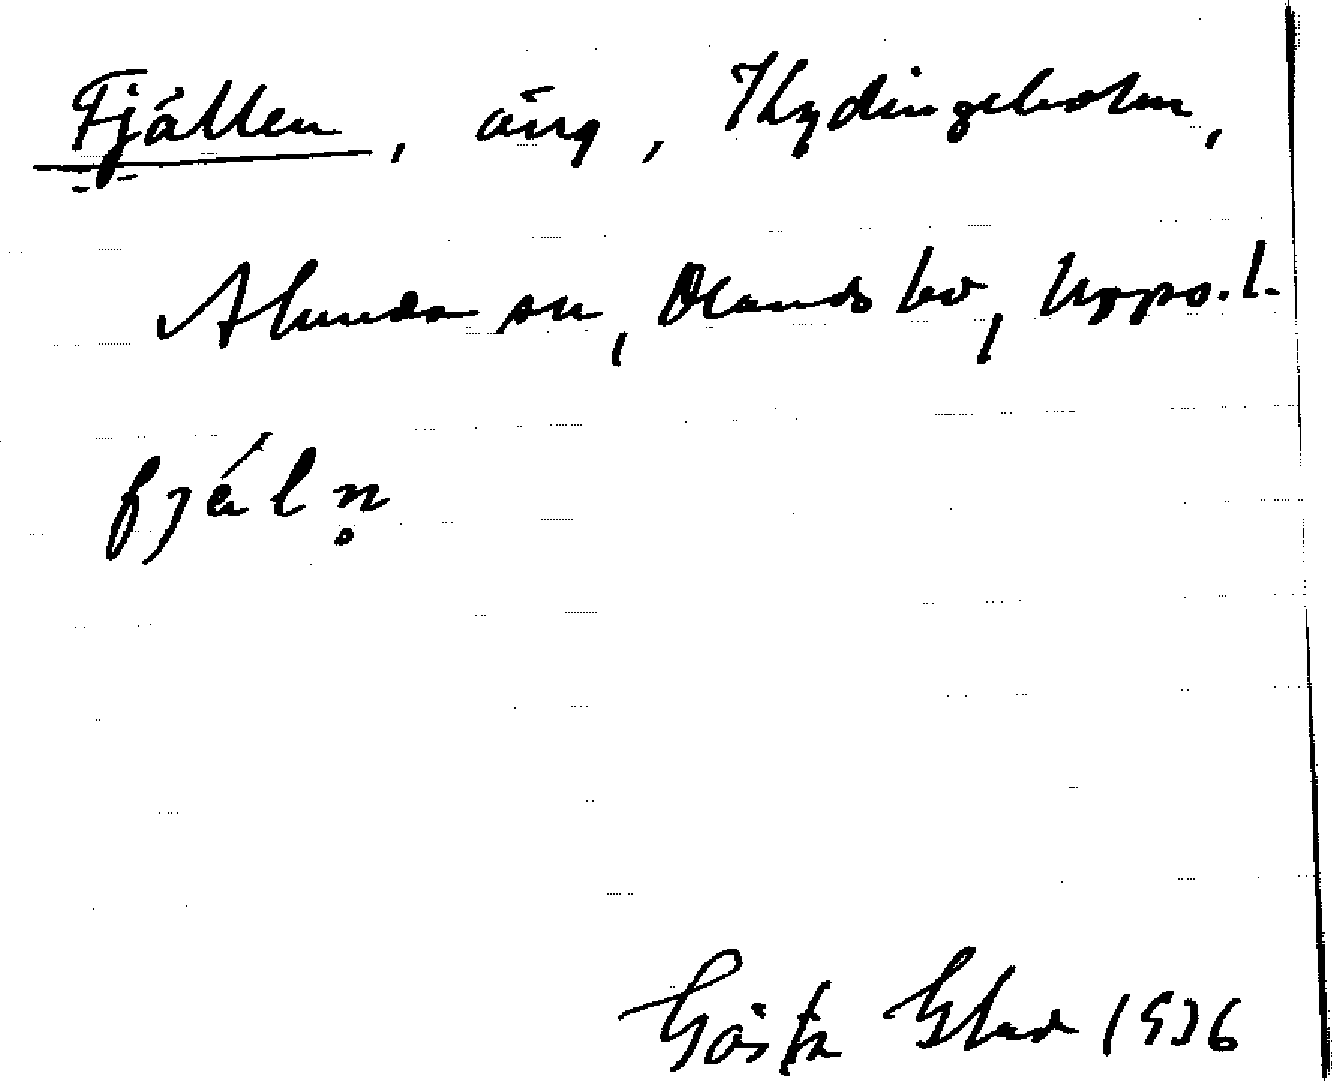 Fjällen, äng, Kydingeholm,
Alunda sn, Olands hd, Upps. l.
fjäl n̥
Gösta Blad 1936